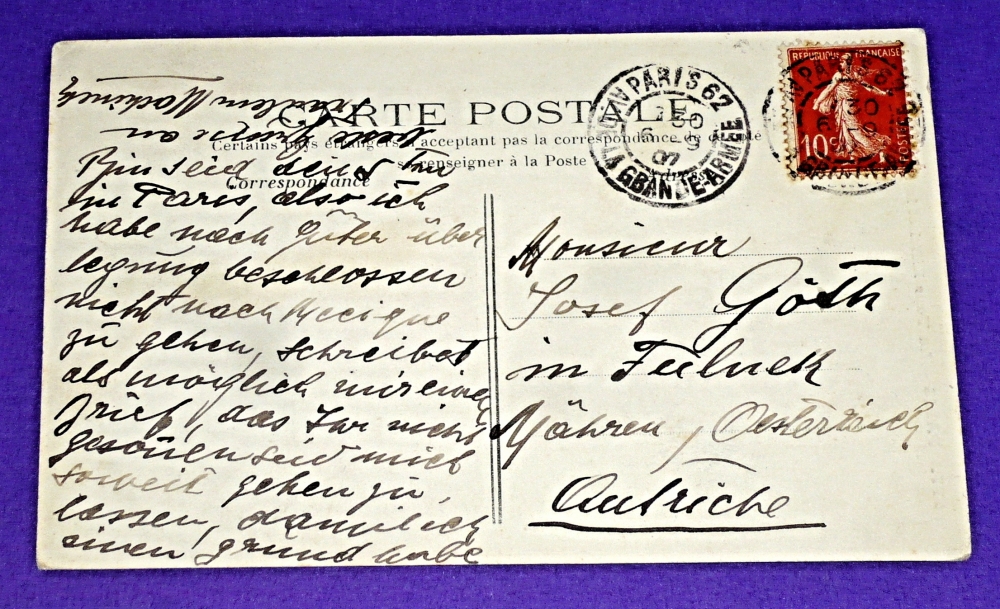 CARTE POSTALE
Certains pays étrangers n'acceptant pas la correspondance de ce côté
se renseigner à la Poste
Correspondance
PARIS 62
LA GRANDE-ARMÉE
07
REPUBLIQUE FRANÇAISE
10c
POSTES
Bin seid
in Paris, also ich
habe nach Guter über
legung beschlossen
nicht nach Mecique
zu gehen, schreibet
als möglich mir einen
Brief, das Ihr nicht
gesonen seid mich
soweit gehen zu
lassen, damit ich
einen grund habe
Monsieur
Josef Göth
in Fulnek
Mähren, Oesterreich
Autriche